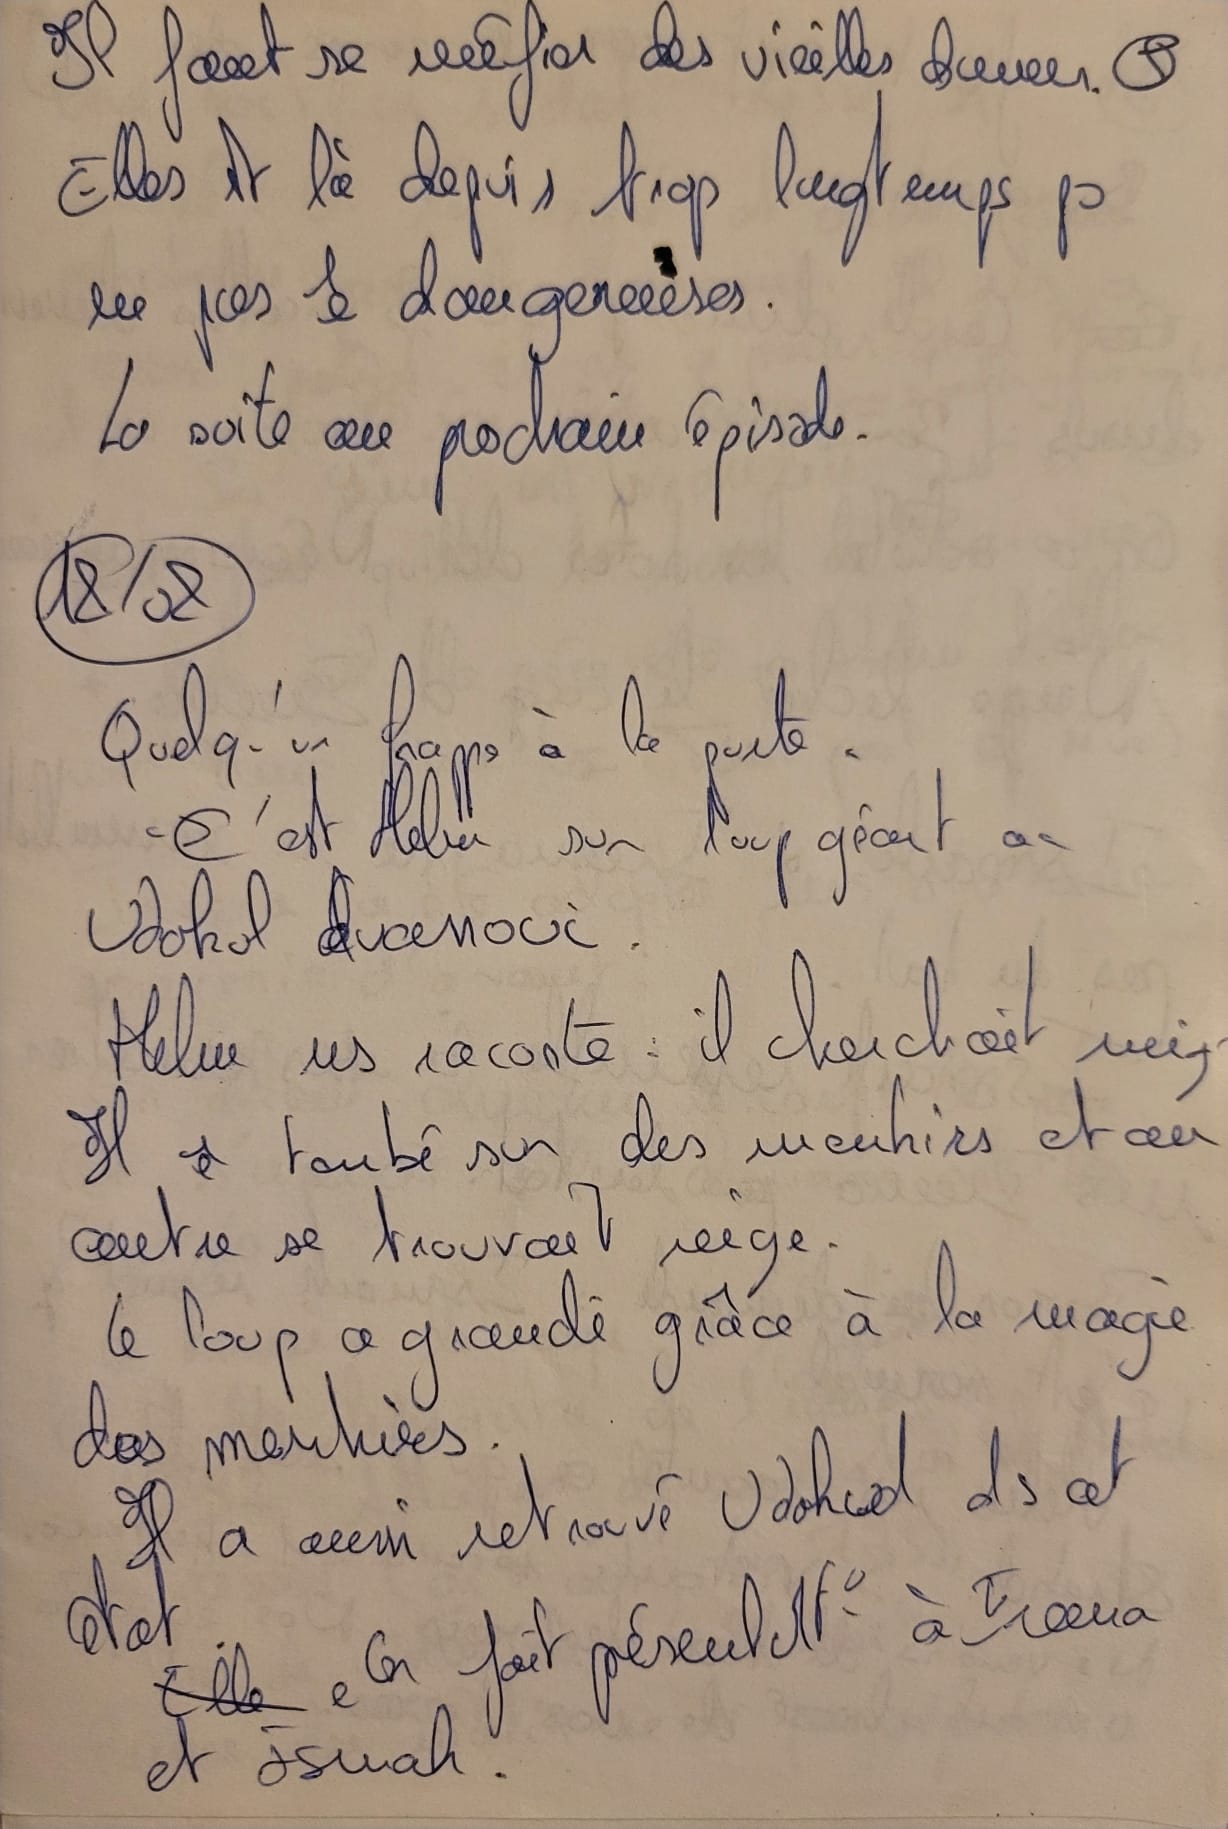 Il faut se méfier des vieilles dames. 9
Elles st là depuis trop longtemps pr
ne pas ê dangereuses.
La suite au prochain épisode.
18/02
Quelqu'un frappe à la porte.
- C'est Helm sur loup géant av
évanoui.
Helm ns raconte : il cherchait neig
Il est tombé sur des menhirs et au
centre se trouvait neige.
Le loup a grandi grâce à la magie
des menhirs.
Il a aussi retrouvé ds cet
état.
Elle On fait présentat° à Irana
et